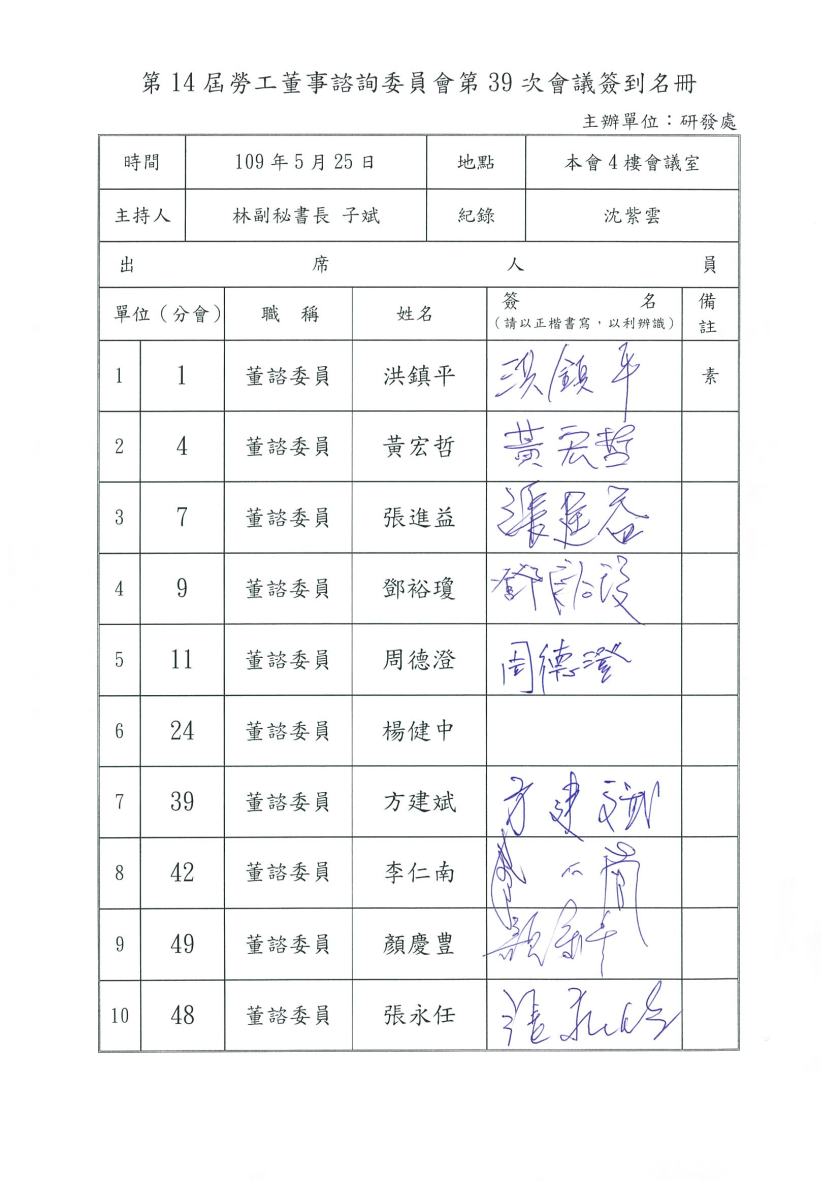 第14屆勞工董事諮詢委員會第39次會議簽到名冊
主辦單位：研發處
時間 109年5月25日 地點 本會4樓會議室
主持人 林副秘書長 子斌 紀錄 沈紫雲
出席人員
單位（分會） 職稱 姓名 簽名 備註
（請以正楷書寫，以利辨識）
1 1 董諮委員 洪鎮平 洪鎮平 素
2 4 董諮委員 黃宏哲 黃宏哲
3 7 董諮委員 張進益 張進益
4 9 董諮委員 鄧裕瓊 鄧裕瓊
5 11 董諮委員 周德澄 周德澄
6 24 董諮委員 楊健中
7 39 董諮委員 方建斌 方建斌
8 42 董諮委員 李仁南
9 49 董諮委員 顏慶豊
10 48 董諮委員 張永任